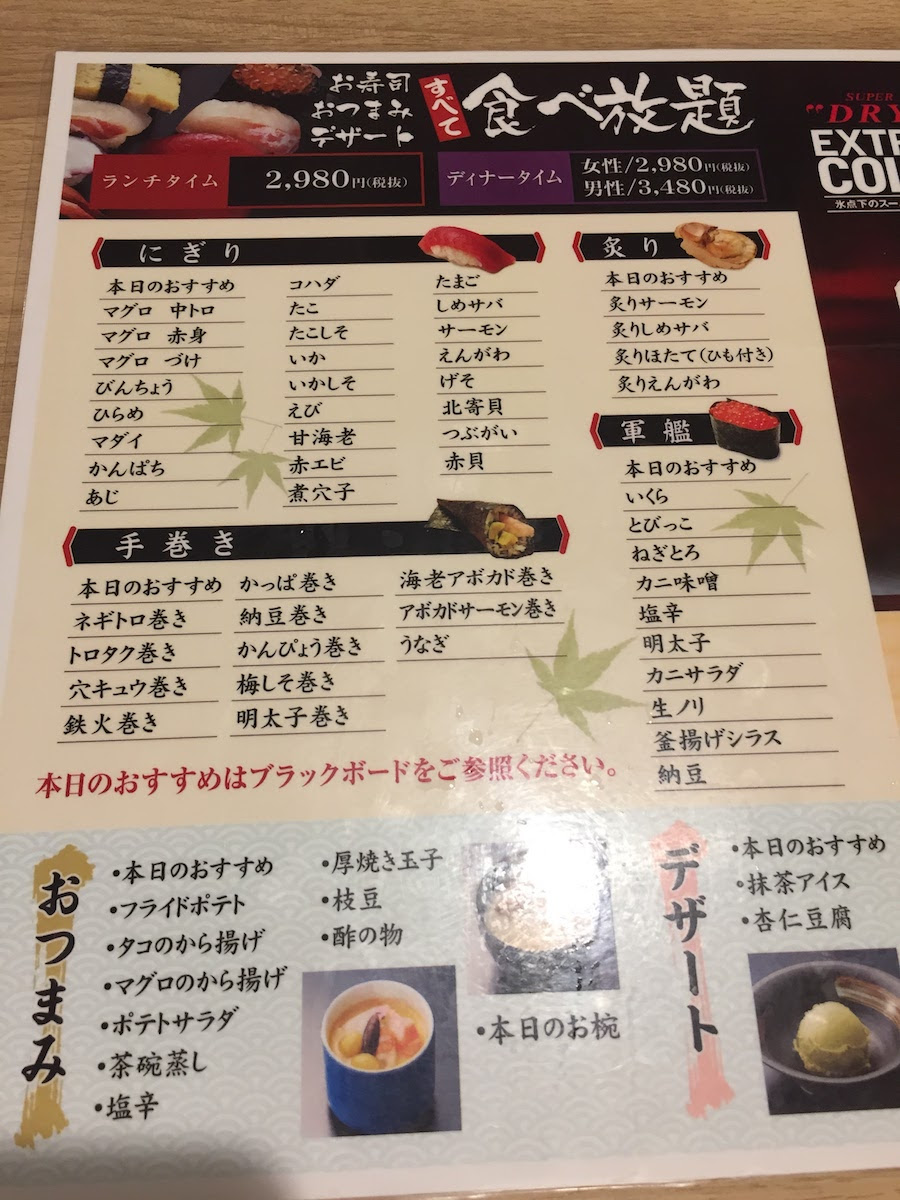 お寿司
おつまみ
デザート
すべて
食べ放題
ランチタイム
2,980円(税抜)
ディナータイム
女性/2,980円(税抜)
男性/3,480円(税抜)
SUPER
"DRY
EXTR
COL
氷点下のスー
にぎり
本日のおすすめ
マグロ 中トロ
マグロ 赤身
マグロ づけ
びんちょう
ひらめ
マダイ
かんぱち
あじ
コハダ
たこ
たこしそ
いか
いかしそ
えび
甘海老
赤エビ
煮穴子
たまご
しめサバ
サーモン
えんがわ
げそ
北寄貝
つぶがい
赤貝
炙り
本日のおすすめ
炙りサーモン
炙りしめサバ
炙りほたて(ひも付き)
炙りえんがわ
軍艦
本日のおすすめ
いくら
とびっこ
ねぎとろ
カニ味噌
塩辛
明太子
カニサラダ
生ノリ
釜揚げシラス
納豆
手巻き
本日のおすすめ
ネギトロ巻き
トロタク巻き
穴キュウ巻き
鉄火巻き
かっぱ巻き
納豆巻き
かんぴょう巻き
梅しそ巻き
明太子巻き
海老アボカド巻き
アボカドサーモン巻き
うなぎ
本日のおすすめはブラックボードをご参照ください。
おつまみ
・本日のおすすめ
・フライドポテト
・タコのから揚げ
・マグロのから揚げ
・ポテトサラダ
・茶碗蒸し
・塩辛
・厚焼き玉子
・枝豆
・酢の物
・本日のお椀
デザート
・本日のおすすめ
・抹茶アイス
・杏仁豆腐